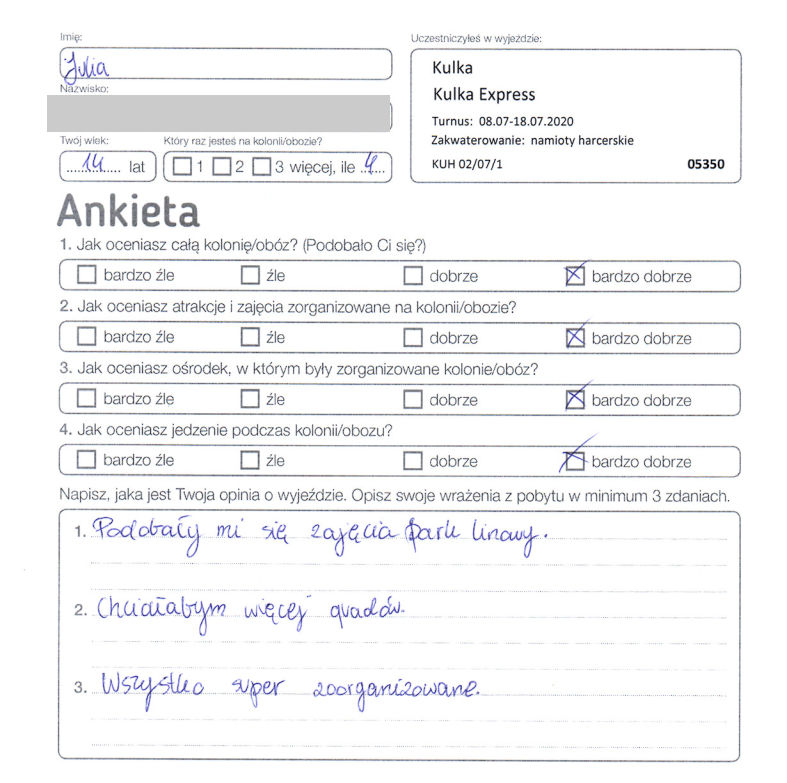 Imię:
Julia
Nazwisko:
Twój wiek:
14 lat
Który raz jesteś na kolonii/obozie?
1 2 3 więcej, ile 4
Uczestniczyłeś w wyjeździe:
Kulka
Kulka Express
Turnus: 08.07-18.07.2020
Zakwaterowanie: namioty harcerskie
KUH 02/07/1 05350
Ankieta
1. Jak oceniasz całą kolonię/obóz? (Podobało Ci się?)
bardzo źle źle dobrze bardzo dobrze
2. Jak oceniasz atrakcje i zajęcia zorganizowane na kolonii/obozie?
bardzo źle źle dobrze bardzo dobrze
3. Jak oceniasz ośrodek, w którym były zorganizowane kolonie/obóz?
bardzo źle źle dobrze bardzo dobrze
4. Jak oceniasz jedzenie podczas kolonii/obozu?
bardzo źle źle dobrze bardzo dobrze
Napisz, jaka jest Twoja opinia o wyjeździe. Opisz swoje wrażenia z pobytu w minimum 3 zdaniach.
1. Podobały mi się zajęcia park linowy.
2. Chciałabym więcej quadów.
3. Wszystko super zoorganizowane.